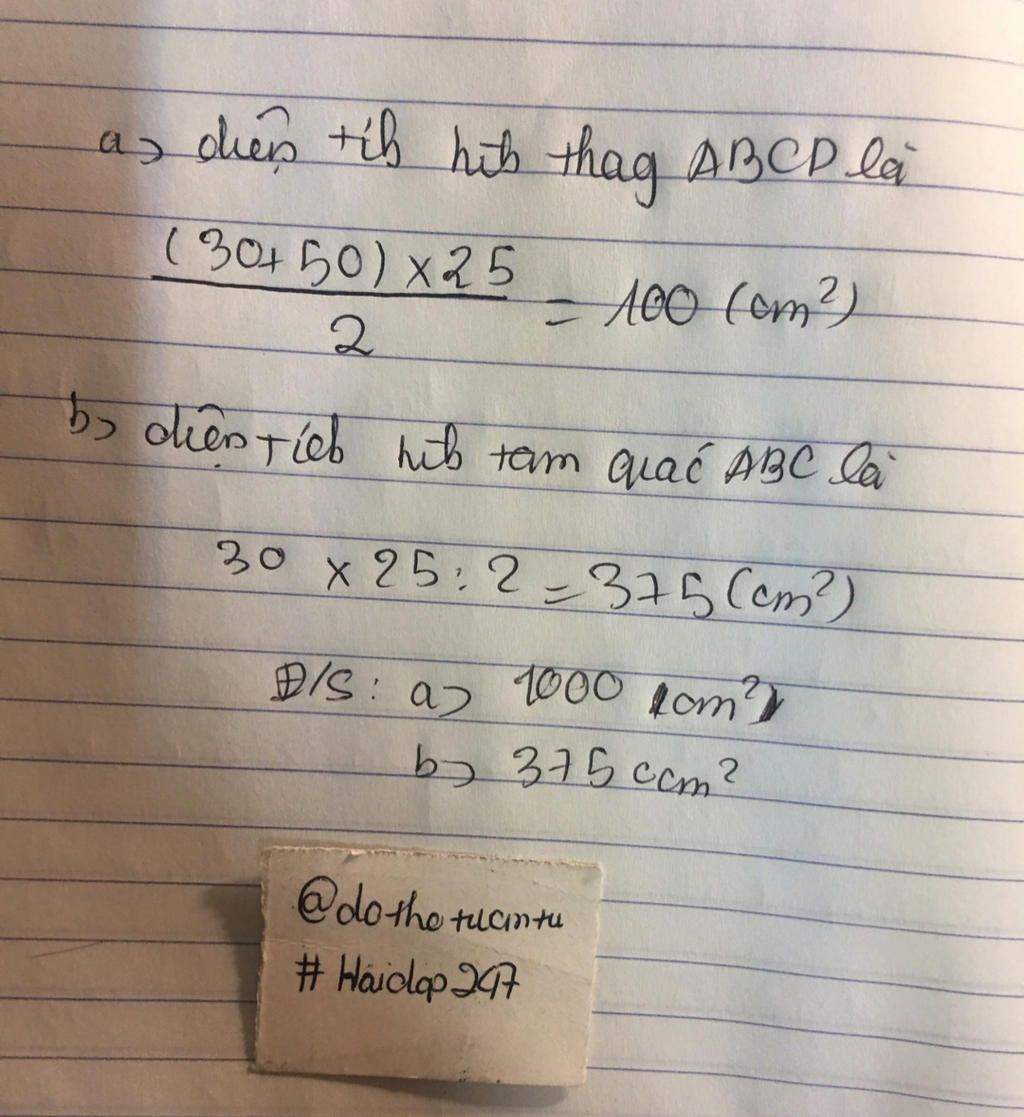 a) diện tíh hìh thag ABCD là
(30+50) × 25
2
= 100 (cm²)
b) diện tích hìh tam giác ABC là
30 × 25 : 2 = 375 (cm²)
Đ/S : a) 1000 (cm²)
b) 375 ccm²
@dothetuantu
# Hoidap247